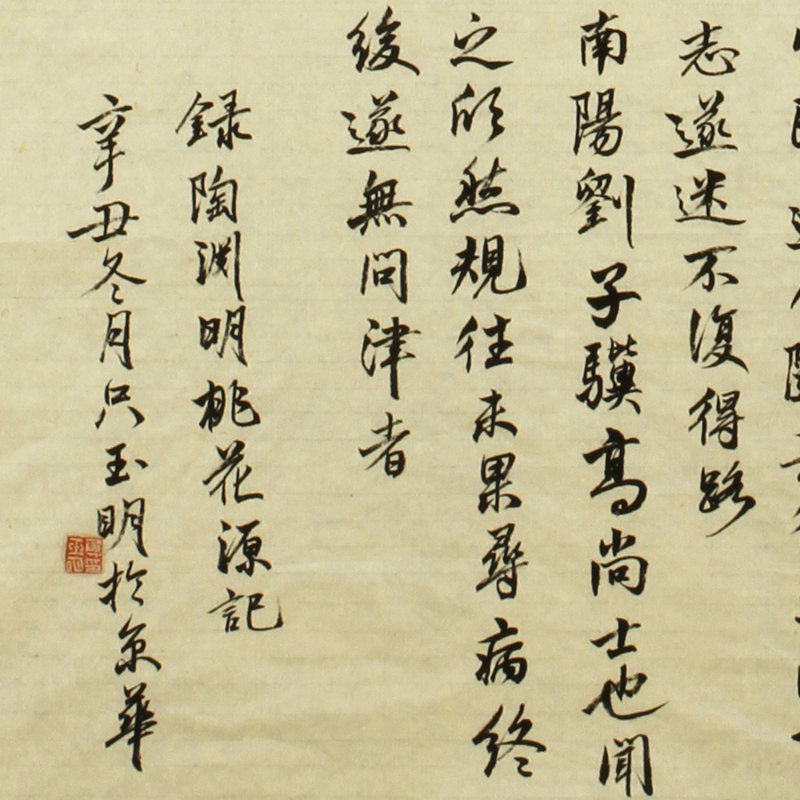 志遂迷不復得路
南陽劉子驥高尚士也聞
之欣然規往未果尋病終
後遂無問津者
錄陶渊明桃花源記
辛丑冬月只玉明於京華